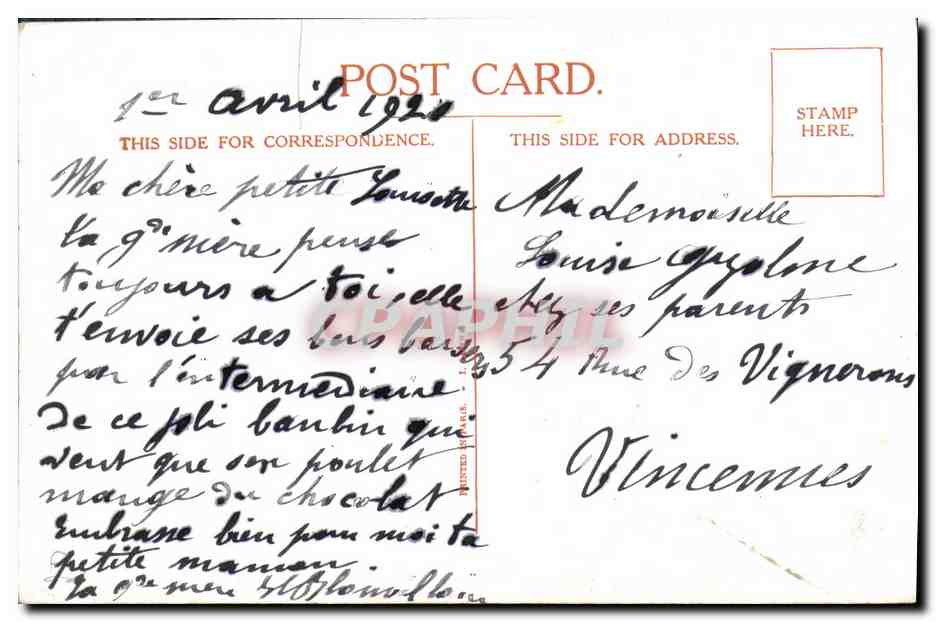 POST CARD.
1er avril 1921
THIS SIDE FOR CORRESPONDENCE.
Ma chère petite Louisette
ta gde mère pense
toujours a toi, elle
t'envoie ses bons baisers
par l'intermédiaire
de ce joli bambin qui
veut que son poulet
mange du chocolat
Embrasse bien pour moi ta
petite maman.
Ta gde mère
THIS SIDE FOR ADDRESS.
STAMP
HERE.
Mademoiselle
Louise
chez ses parents
54 Rue des Vignerons
Vincennes
PRINTED IN PARIS.
CPAPHIL